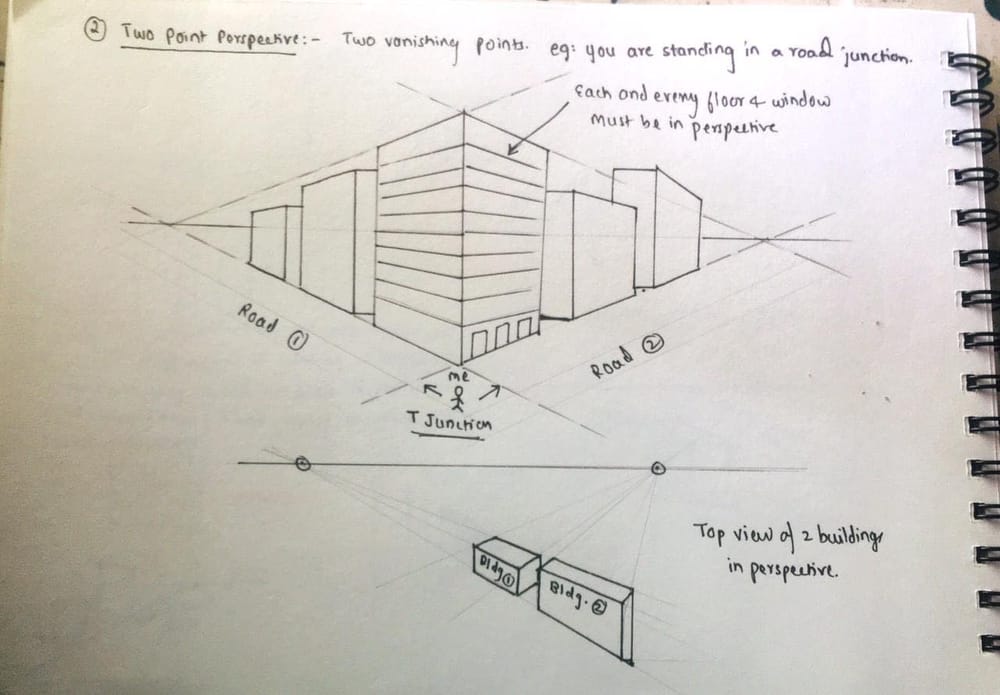 ② Two Point Perspective:- Two vanishing points. eg: you are standing in a road junction.
Each and every floor & window
must be in perspective
Road ①
Road ②
me
T Junction
Top view of 2 buildings
in perspective.
Bldg ①
Bldg. ②